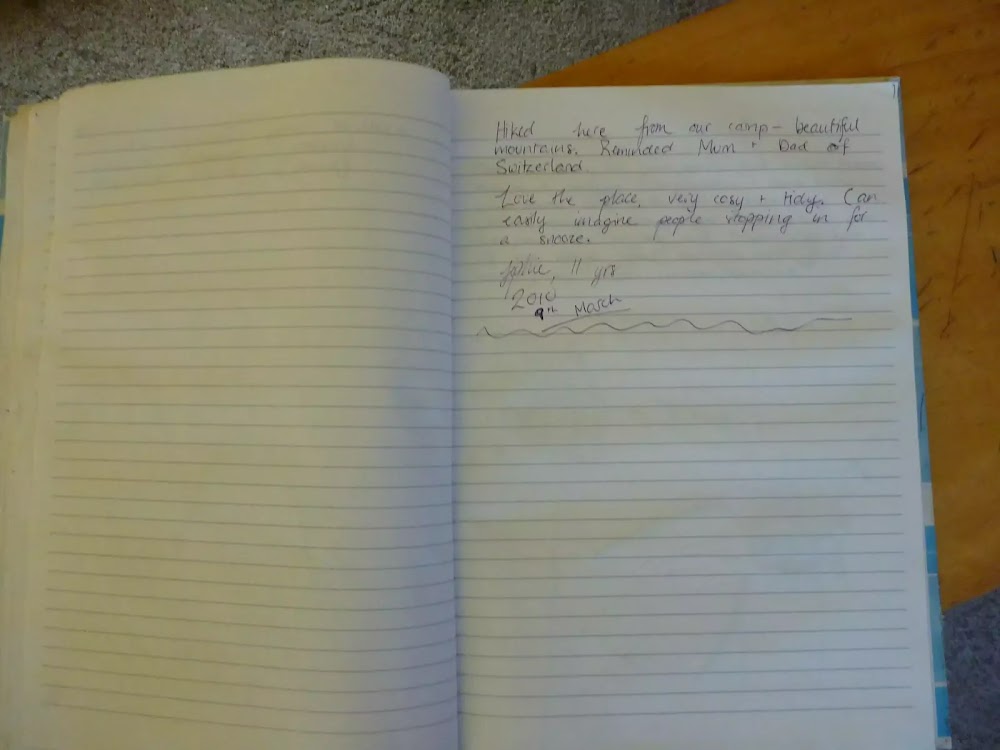 Hiked here from our camp - beautiful
mountains. Reminded Mum + Dad of
Switzerland.
Love the place, very cosy + tidy. Can
easily imagine people stopping in for
a snooze.
11 yrs
2010
9th March